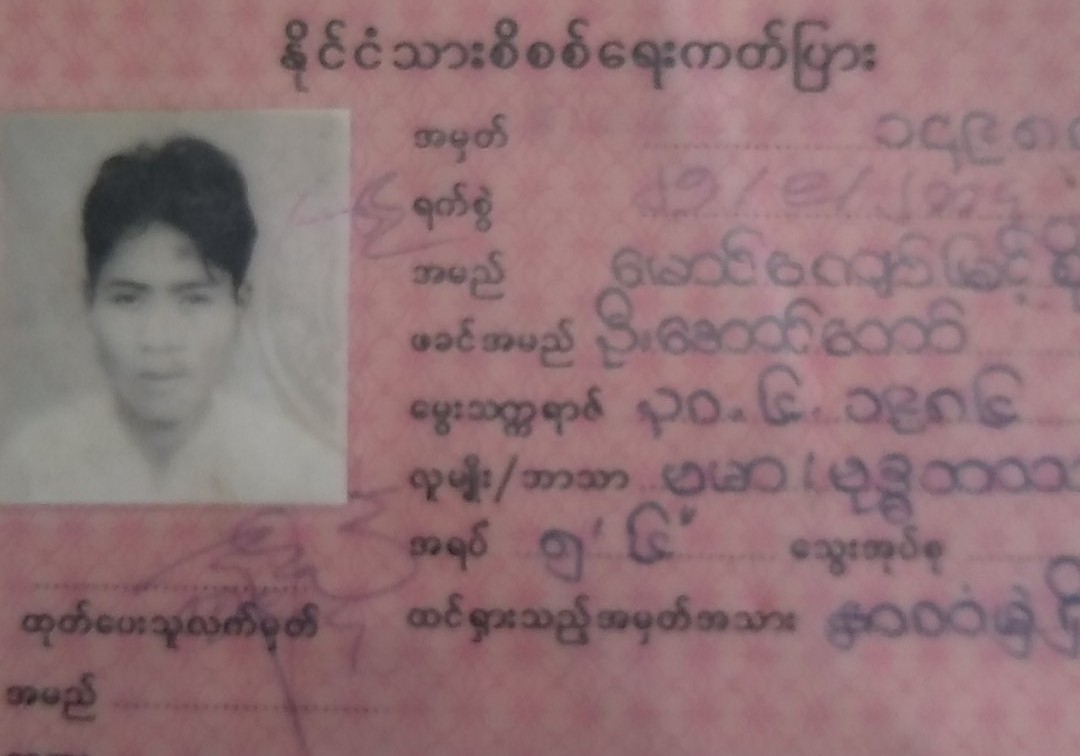 နိုင်ငံသားစိစစ်ရေးကတ်ပြား
အမှတ် ၁၄၉၈
ရက်စွဲ
အမည် မောင်ကျော်မြင့်
ဖခင်အမည် ဦးအောင်တော်
မွေးသက္ကရာဇ် ၃၀.၆.၁၉၈၆
လူမျိုး/ဘာသာ ဗမာ/ဗုဒ္ဓဘာသာ
အရပ် ၅' ၆" သွေးအုပ်စု
ထင်ရှားသည့်အမှတ်အသား
ထုတ်ပေးသူလက်မှတ်
အမည်